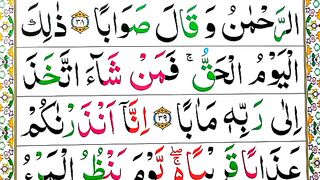 الرَّحْمٰنُ وَ قَالَ صَوَابًا ﴿٣٨﴾ ذٰلِكَ
الْيَوْمُ الْحَقُّ ۚ فَمَنْ شَآءَ اتَّخَذَ
اِلٰى رَبِّهٖ مَاٰبًا ﴿٣٩﴾ اِنَّاۤ اَنْذَرْنٰكُمْ
عَذَابًا قَرِيْبًا ۚۖ۬ يَّوْمَ يَنْظُرُ الْمَرْءُ